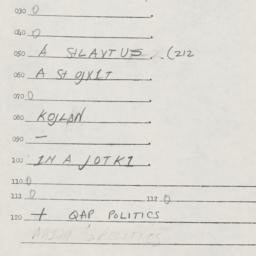 030 0
040 0
050 A SLAVTUS . (212
060 A St OJXIT
070 0
080 KOJLAN
090 —
100 IN A JOTKI
110 0
111 0 112 0
120 + QAP POLITICS